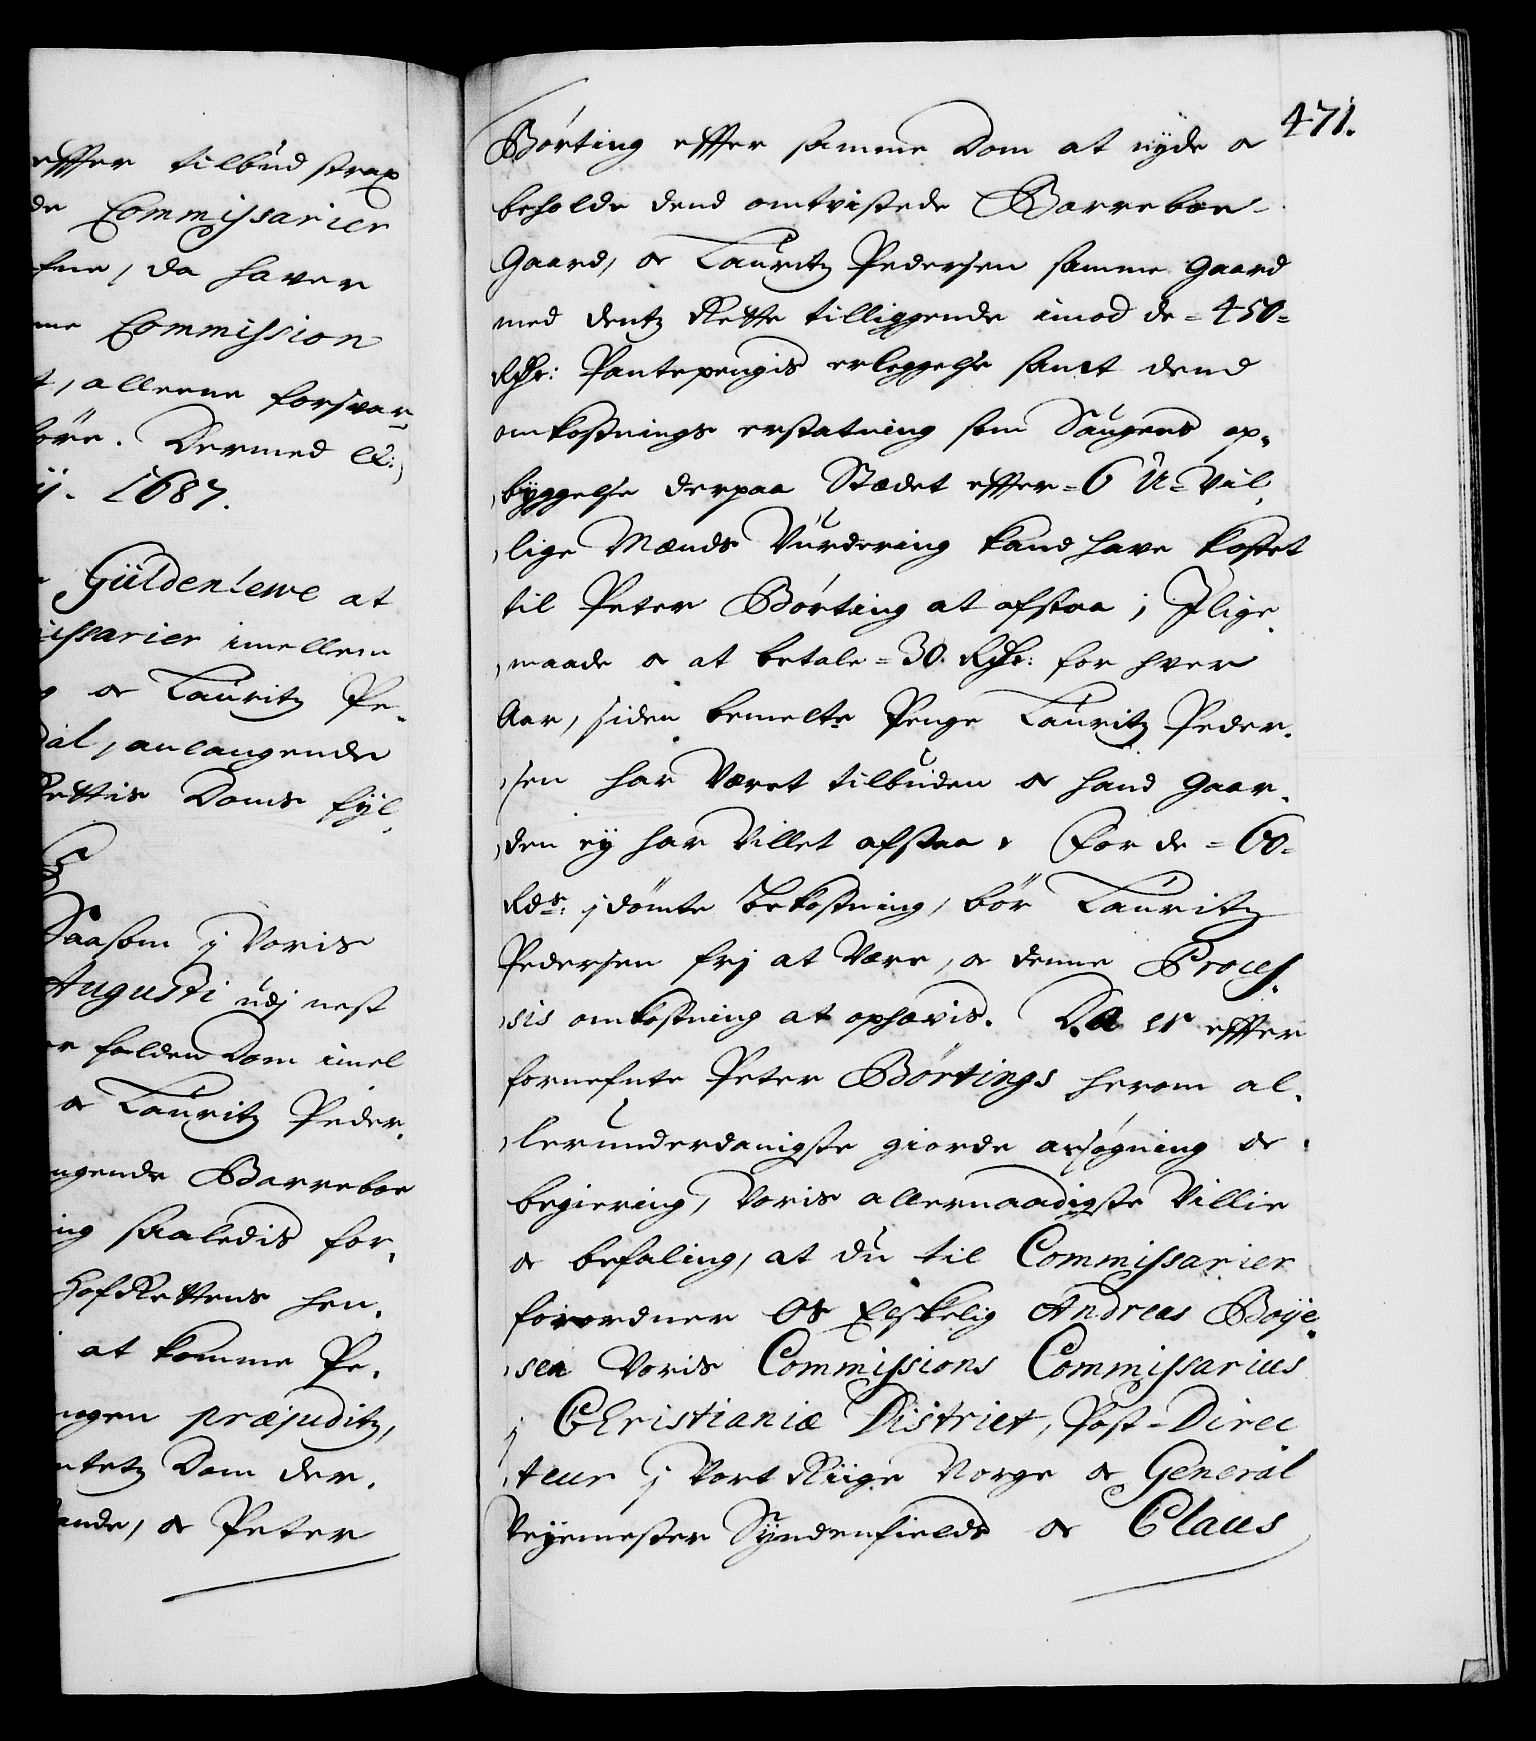 effter tilbud strax
de Commissarier
efne, da haver
me Commission
t, alleene forsvar
böre. Dermed etc:
ij. 1687.
Güldenlewe at
issarier imellem
g oc Lauritz Pe-
dal, anlangende
Rettis Doms fyl-
Saasom j Voris
Augusti udj nest
er falden Dom imel
oc Lauritz Peder-
ngende Barreboe
ing saaledis for-
HofRettens hen-
at komme Pe-
ingen præjuditz,
ntetz Dom der-
ande, oc Peter
471.
Börting effter samme Dom at nyde oc
beholde dend omtvistede Barreboe-
Gaard, oc Lauritz Pedersen samme Gaard
med dentz Rette tilliggende imod de = 450 =
Rdlr: Pantepengis erleggelse samt dend
omkostnings erstatning som Saugens op-
byggelse derpaa Stædet effter = 6 U-Vil-
lige Mænds Vurdering kand have kostet
til Peter Börting at afstaa; Jlige-
maade oc at betale = 30. Rdlr: for hver
Aar, siden bemelte Penge Lauritz Peder-
sen har Været tilbuden oc hand Gaar-
den ej har Villet afstaa. For de = 60 =
Rdr: jdömte bekostning, bör Lauritz
Pedersen frj at Være, oc denne Proces-
sis omkostning at ophævis. Da er effter
fornefnte Peter Börtings herom al-
lerunderdanigste giorde ansøgning oc
begiering, Voris allernaadigste Villie
oc befaling, at du til Commissarier
forordner Os Elskelig Andreas Boÿe-
sen Voris Commissions Commissarius
j Christianiæ District, Post-Direc
teur j Vort Riige Norge oc General
Veÿemester Syndenfields oc Claus